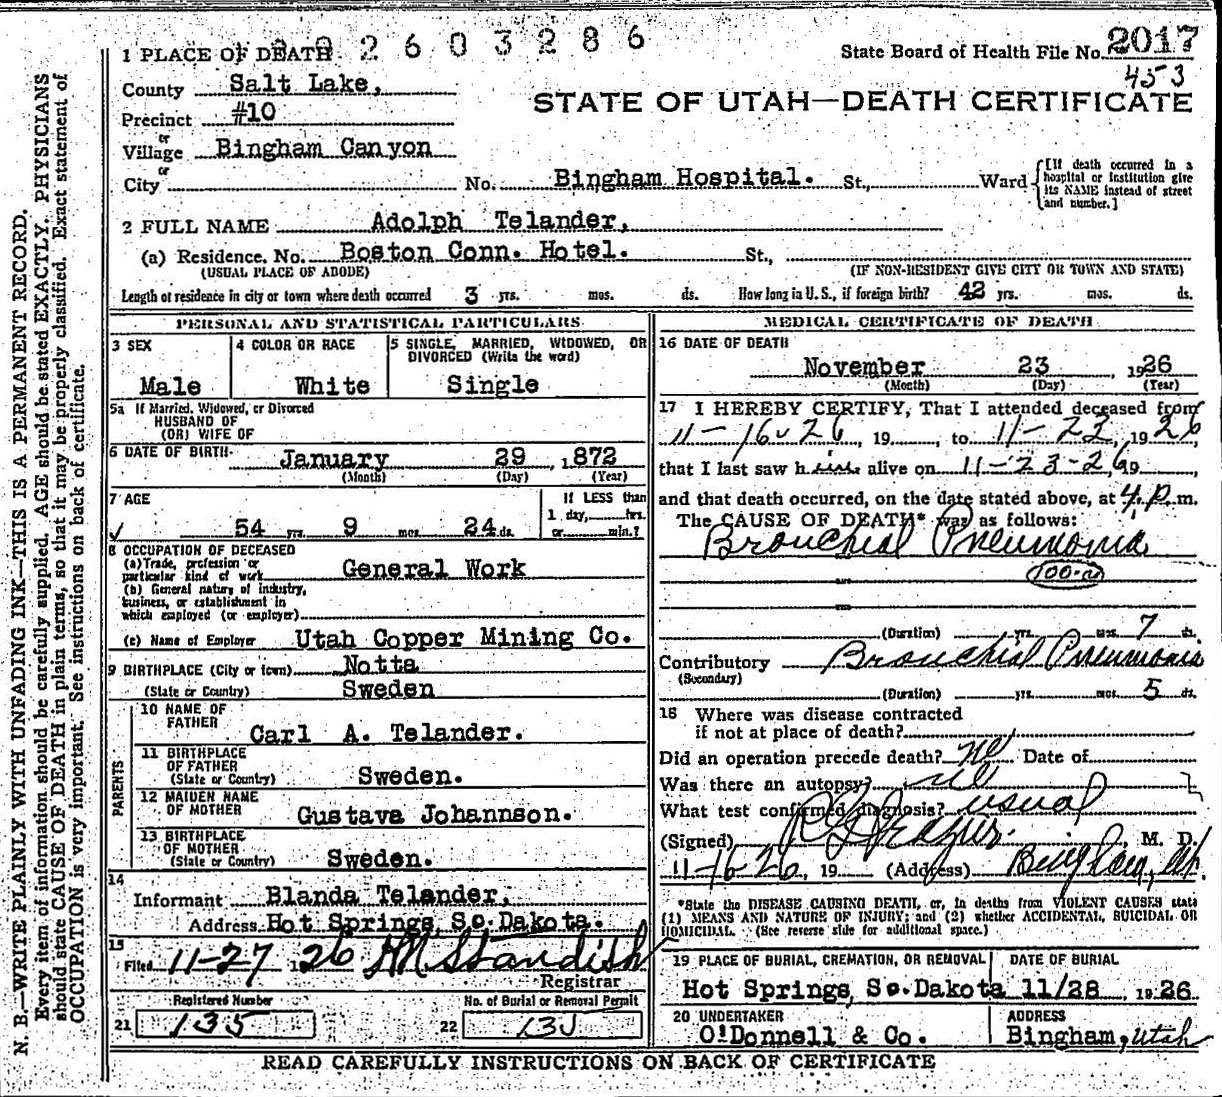 2603286
State Board of Health File No. 2017
453
STATE OF UTAH—DEATH CERTIFICATE
1 PLACE OF DEATH
County Salt Lake,
Precinct #10
or
Village Bingham Canyon
or
City No. Bingham Hospital. St., Ward
[If death occurred in a hospital or institution give its NAME instead of street and number.]
2 FULL NAME Adolph Telander,
(a) Residence. No. Boston Conn. Hotel. St.,
(USUAL PLACE OF ABODE) (IF NON-RESIDENT GIVE CITY OR TOWN AND STATE)
Length of residence in city or town where death occurred 3 yrs. mos. ds. How long in U. S., if foreign birth? 42 yrs. mos. ds.
PERSONAL AND STATISTICAL PARTICULARS
3 SEX
Male
4 COLOR OR RACE
White
5 SINGLE, MARRIED, WIDOWED, OR
DIVORCED (Write the word)
Single
5a If Married, Widowed, or Divorced
HUSBAND OF
(OR) WIFE OF
6 DATE OF BIRTH January 29, 1872
(Month) (Day) (Year)
7 AGE
54 yrs. 9 mos. 24 ds.
If LESS than
1 day, hrs.
or min.?
8 OCCUPATION OF DECEASED
(a) Trade, profession or
particular kind of work General Work
(b) General nature of industry,
business, or establishment in
which employed (or employer)
(c) Name of Employer Utah Copper Mining Co.
9 BIRTHPLACE (City or town) Notta
(State or Country) Sweden
PARENTS
10 NAME OF
FATHER Carl A. Telander.
11 BIRTHPLACE
OF FATHER
(State or Country) Sweden.
12 MAIDEN NAME
OF MOTHER Gustava Johannson.
13 BIRTHPLACE
OF MOTHER
(State or Country) Sweden.
14
Informant Blanda Telander,
Address Hot Springs, So. Dakota.
15
Filed 11-27 1926 Standish
Registrar
Registered Number
21 135
No. of Burial or Removal Permit
22 135
MEDICAL CERTIFICATE OF DEATH
16 DATE OF DEATH
November 23 1926
(Month) (Day) (Year)
17 I HEREBY CERTIFY, That I attended deceased from
11-16-26, 19 , to 11-23, 1926
that I last saw him alive on 11-23-26, 19 ,
and that death occurred, on the date stated above, at 4 P. m.
The CAUSE OF DEATH* was as follows:
Bronchial Pneumonia
(Duration) yrs. mos. 7 ds.
Contributory Bronchial Pneumonia
(Secondary)
(Duration) yrs. mos. 5 ds.
18 Where was disease contracted
if not at place of death?
Did an operation precede death? no Date of
Was there an autopsy? no
What test confirmed diagnosis? usual
(Signed) , M. D.
11-16-26, 19 (Address) Bingham, Ut.
*State the DISEASE CAUSING DEATH, or, in deaths from VIOLENT CAUSES state
(1) MEANS AND NATURE OF INJURY; and (2) whether ACCIDENTAL, SUICIDAL OR
HOMICIDAL. (See reverse side for additional space.)
19 PLACE OF BURIAL, CREMATION, OR REMOVAL
Hot Springs, So. Dakota
DATE OF BURIAL
11/28, 1926
20 UNDERTAKER
O'Donnell & Co.
ADDRESS
Bingham, Utah
READ CAREFULLY INSTRUCTIONS ON BACK OF CERTIFICATE
N. B.—WRITE PLAINLY WITH UNFADING INK—THIS IS A PERMANENT RECORD.
Every item of information should be carefully supplied. AGE should be stated EXACTLY. PHYSICIANS
should state CAUSE OF DEATH in plain terms, so that it may be properly classified. Exact statement of
OCCUPATION is very important. See instructions on back of certificate.